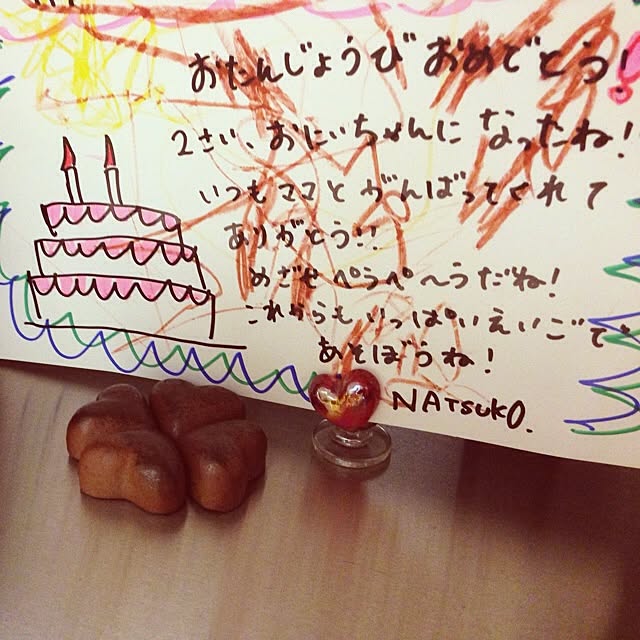 おたんじょうび おめでとう!
2さい、おにいちゃんに なったね!
いつもママと がんばってくれて
ありがとう!!
めざせ ぺらぺ〜らだね!
これからも いっぱい えいごで
あそぼうね!
NATSUKO.